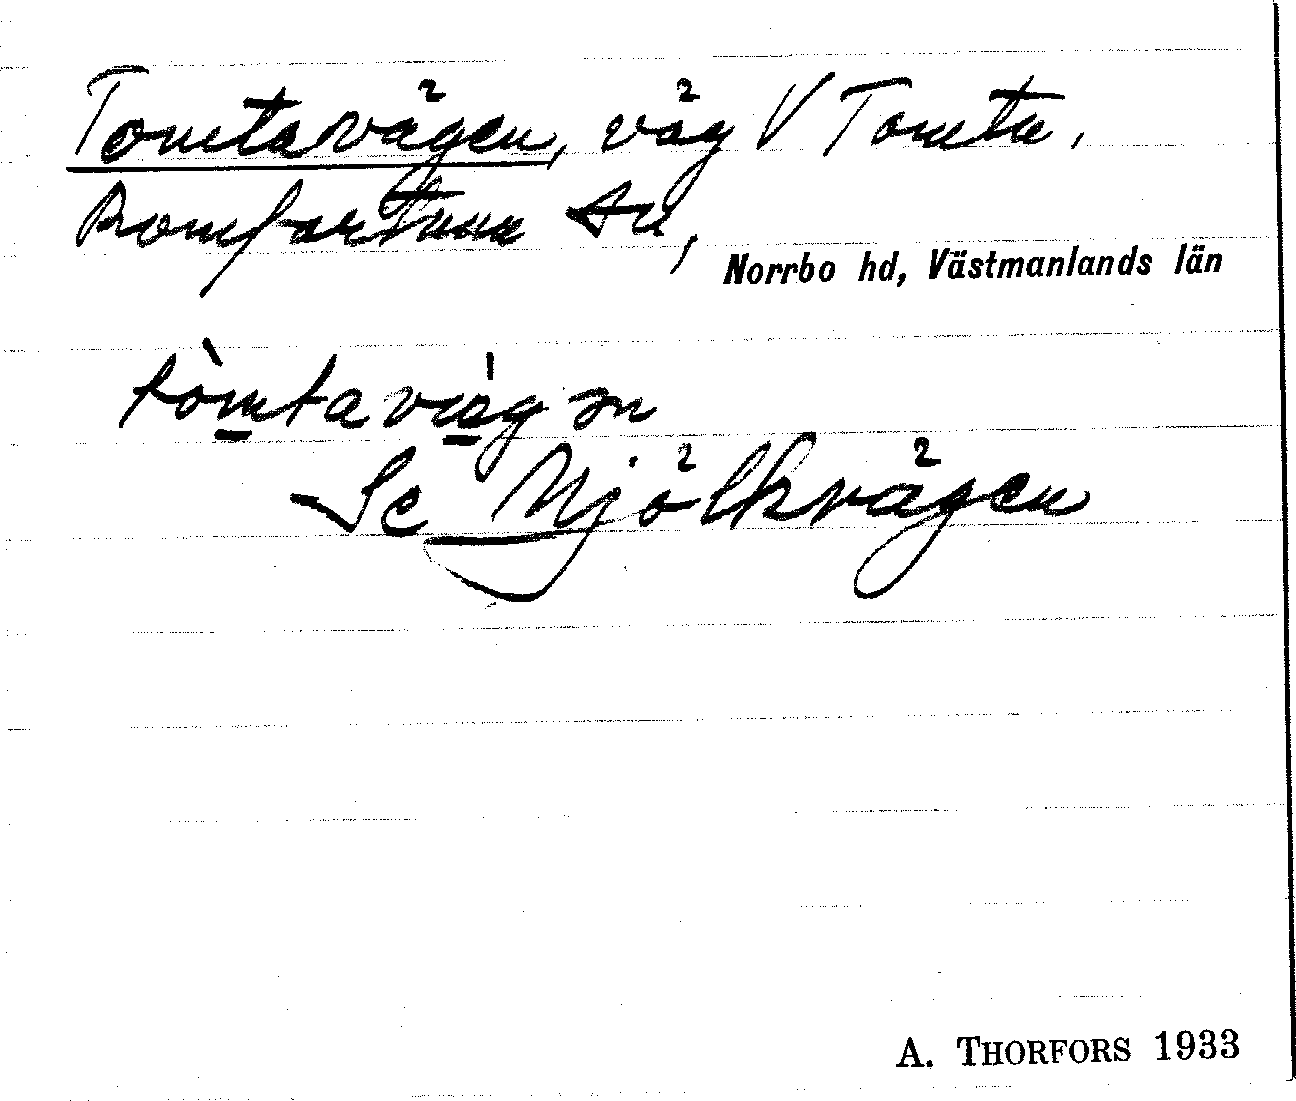 Tomtavägen, väg V Tomta,
Romfartuna sn,
Norrbo hd, Västmanlands län
tòmtavä́gən
Se Mjölkvägen
A. THORFORS 1933